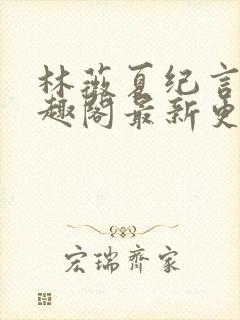 林薇夏纪言
趣阁最新更
宏瑞齐家